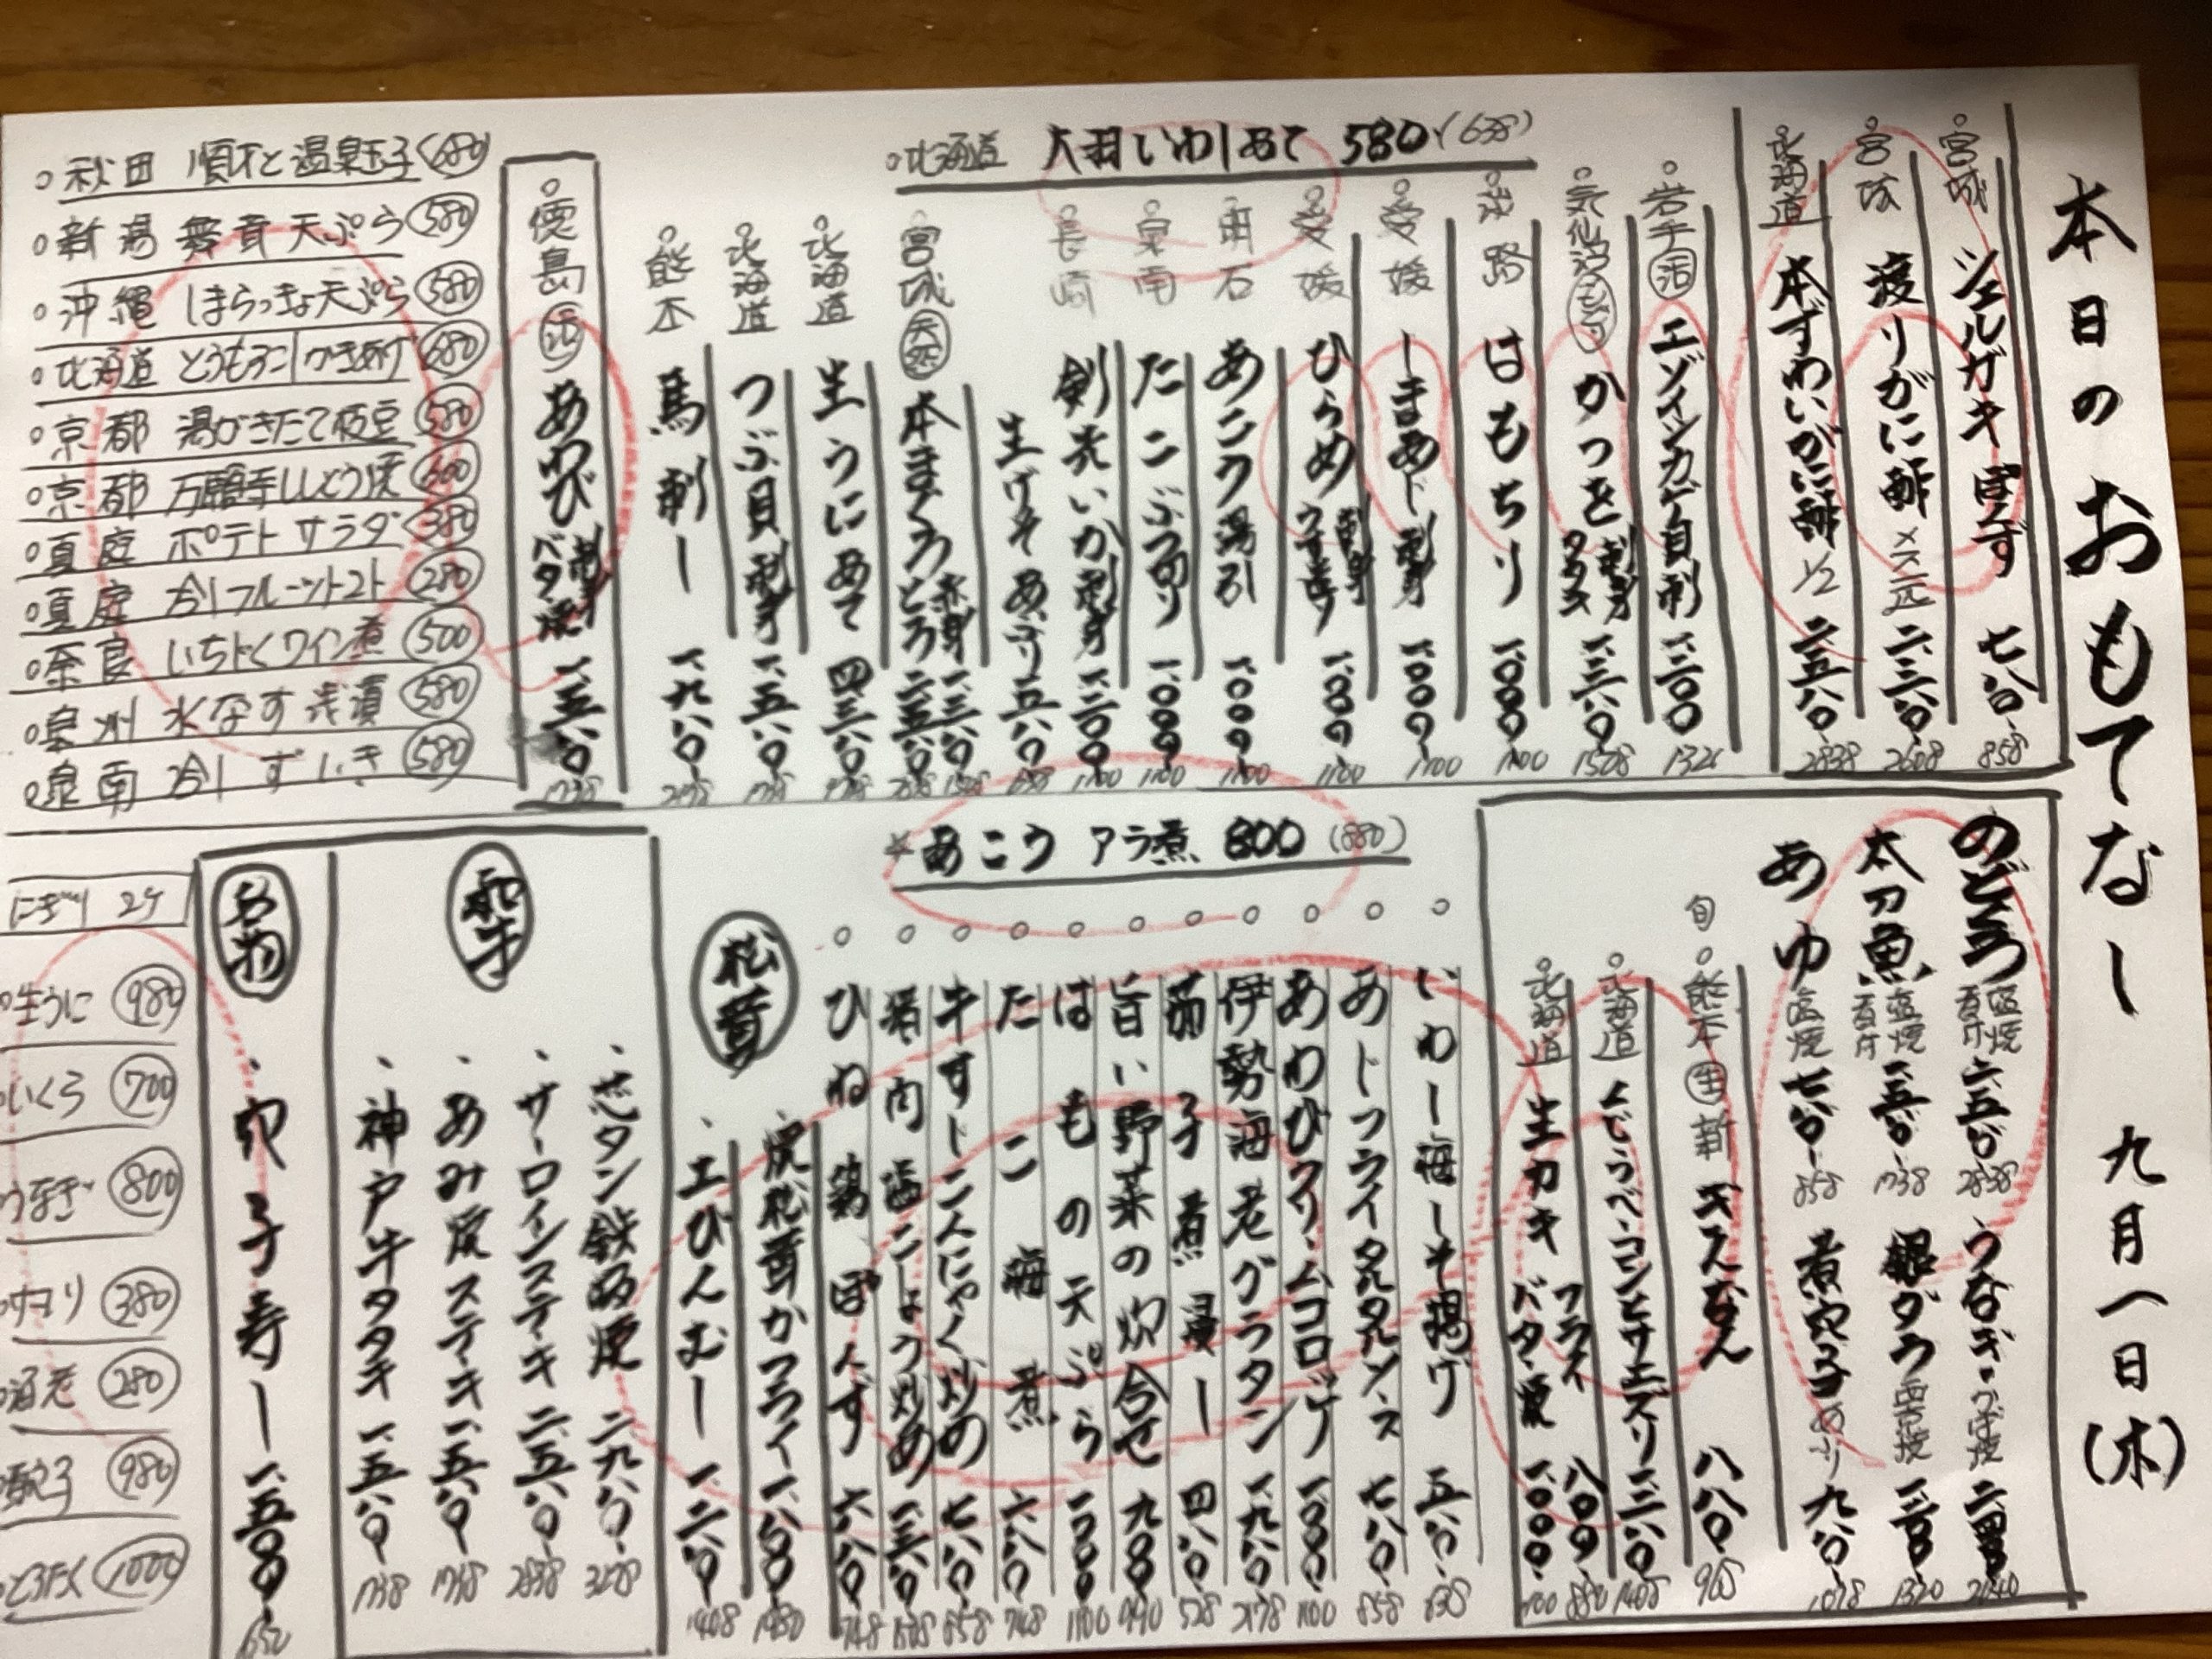 本日のおもてなし 九月一日(木)
宮城 シェルガキぽんず 七八〇 858
宮城 渡りがに酢 メス一匹 二、三八〇 2608
北海道 本ずわいがに酢 1/2 二、五八〇 2838
北海道 大羽いわしあて 580 (638)
岩手 活 エゾイシカゲ貝刺 一、二〇〇 1320
気仙沼 もどり かつを 刺身 タタキ 一、三八〇 1508
淡路 はもちり 一、〇〇〇 1100
愛媛 しまあじ刺身 一、〇〇〇 1100
愛媛 ひらめ 刺身 うす造り 一、〇〇〇 1100
明石 あこう湯引 一、〇〇〇 1100
泉南 たこぶつ切り 一、〇〇〇 1100
長崎 剣先いか刺身 1100
生げそあぶり 五八〇
宮城 天然 本まぐろ 赤身 一、三八〇 とろ 二、五八〇
北海道 生うにあて
北海道 つぶ貝刺身 一、五八〇 1738
熊本 馬刺し 一、九八〇 2178
徳島 活 あわび 刺身 バタ焼 一、五八〇 1738
秋田 順才と温泉玉子 680
新潟 舞茸天ぷら 580
沖縄 しまらっきょ天ぷら 580
北海道 とうもろこしかきあげ 680
京都 湯がきたて枝豆 580
京都 万願寺ししとう焼 600
夏庭 ポテトサラダ 380
夏庭 冷しフルーツトマト 280
奈良 いちじくワイン煮 500
泉州 水なす浅漬 580
泉南 冷しずいき 580
のどぐろ 塩焼 煮付 二、五八〇 2838
太刀魚 塩焼 煮付 一、五八〇 1738
あゆ 塩焼 七八〇 858
うなぎ かば焼 2640
銀ダラ 西京焼 一、二〇〇 1320
煮穴子 あぶり 九八〇 1078
旬 熊本 生 新 ぎんなん 八八〇 968
北海道 くじらベーコンとサエズリ 1408
北海道 生カキ フライ 八〇〇 880 バタ焼 一、〇〇〇 1100
あこう アラ煮 800 (880)
いわし梅しそ揚げ 五八〇 638
あじフライタルタルソース 七八〇 858
あわびクリームコロッケ 一、〇〇〇 1100
伊勢海老グラタン 一、九八〇 2178
茄子煮浸し 四八〇 528
旨い野菜の炊合せ 九〇〇 990
はもの天ぷら 一、〇〇〇 1100
たこ梅煮 六八〇 748
牛すじこんにゃく炒め 七八〇 858
猪肉塩こしょう炒め 一、三八〇 1508
ひね鶏ぽんず 六八〇 748
松茸
焼松茸かつフライ 一、八〇〇 1980
エびんむし 一、二八〇 1408
和牛
芯タン鉄板焼 二、九八〇 3278
サーロインステーキ 二、五八〇 2838
あみ焼ステーキ 一、五八〇 1738
神戸牛タタキ 一、五八〇 1738
名物
穴子寿し 一、五〇〇 1650
にぎり 2ケ
生うに 980
いくら 700
うなぎ 800
サヨリ 380
280
980
とろたく 1000